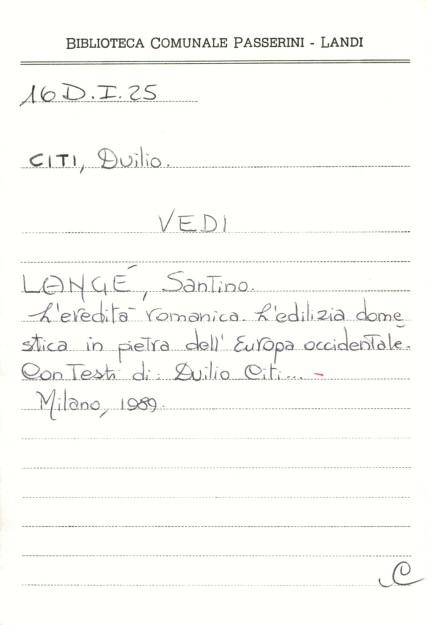 BIBLIOTECA COMUNALE PASSERINI - LANDI
16 D.I.25
CITI, Duilio.
VEDI
LANGÉ, Santino.
L'eredità romanica. L'edilizia dome
stica in pietra dell'Europa occidentale.
Con Testi di: Duilio Citi... -
Milano, 1989.
C